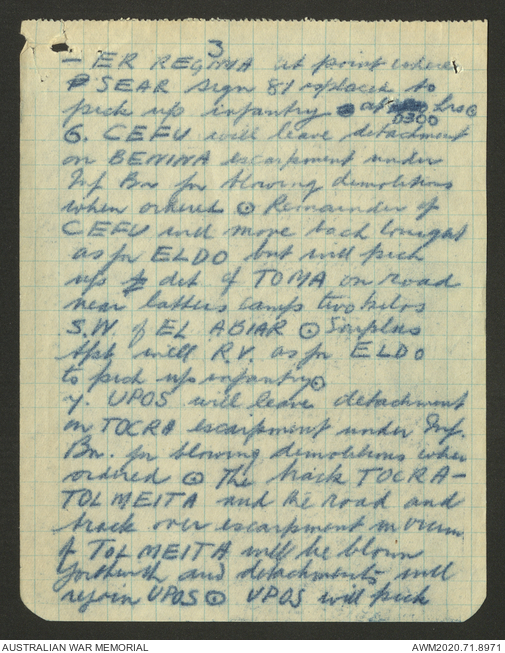 3
- ER REGIMA at point where
SEAR sign 81 is placed to
pick up infantry at 0300 hrs ⊙
6. CEFU will leave detachment
on BENINA escarpment under
Inf Bn for blowing demolitions
when ordered ⊙ Remainder of
CEFU will move back tonight
as for ELDO but will pick
up det of TOMA on road
near latters camp two kilos
S.W. of EL ABIAR ⊙ Surplus
tpt will R.V. as for ELDO
to pick up infantry ⊙
7. UPOS will leave detachment
on TOCRA escarpment under Inf.
Bn. for blowing demolitions when
ordered ⊙ The track TOCRA-
TOLMEITA and the road and
track over escarpment in vicin.
of TOLMEITA will be blown
forthwith and detachments will
rejoin UPOS ⊙ UPOS will pick
AUSTRALIAN WAR MEMORIAL
AWM2020.71.8971